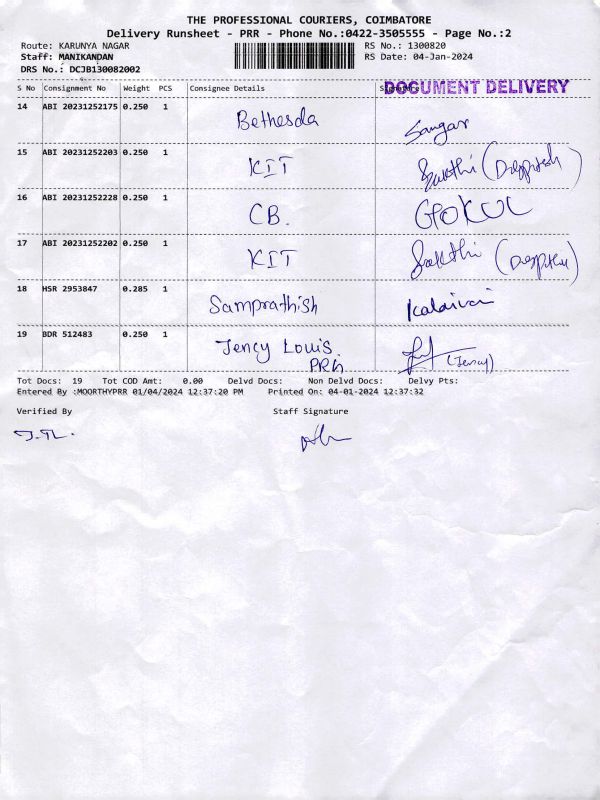 THE PROFESSIONAL COURIERS, COIMBATORE
Delivery Runsheet - PRR - Phone No.:0422-3505555 - Page No.:2
Route: KARUNYA NAGAR RS No.: 1300820
Staff: MANIKANDAN RS Date: 04-Jan-2024
DRS No.: DCJB130082002
DOCUMENT DELIVERY
S No Consignment No Weight PCS Consignee Details Signature
14 ABI 20231252175 0.250 1 Bethesda Sangar
15 ABI 20231252203 0.250 1 KIT Sakthi
16 ABI 20231252228 0.250 1 CB. GOKUL
17 ABI 20231252202 0.250 1 KIT Sakthi
18 HSR 2953847 0.285 1 Samprathish Kalaivani
19 BDR 512483 0.250 1 Jency Louis. (Jency)
PRR.
Tot Docs: 19 Tot COD Amt: 0.00 Delvd Docs: Non Delvd Docs: Delvy Pts:
Entered By :MOORTHYPRR 01/04/2024 12:37:20 PM Printed On: 04-01-2024 12:37:32
Verified By Staff Signature